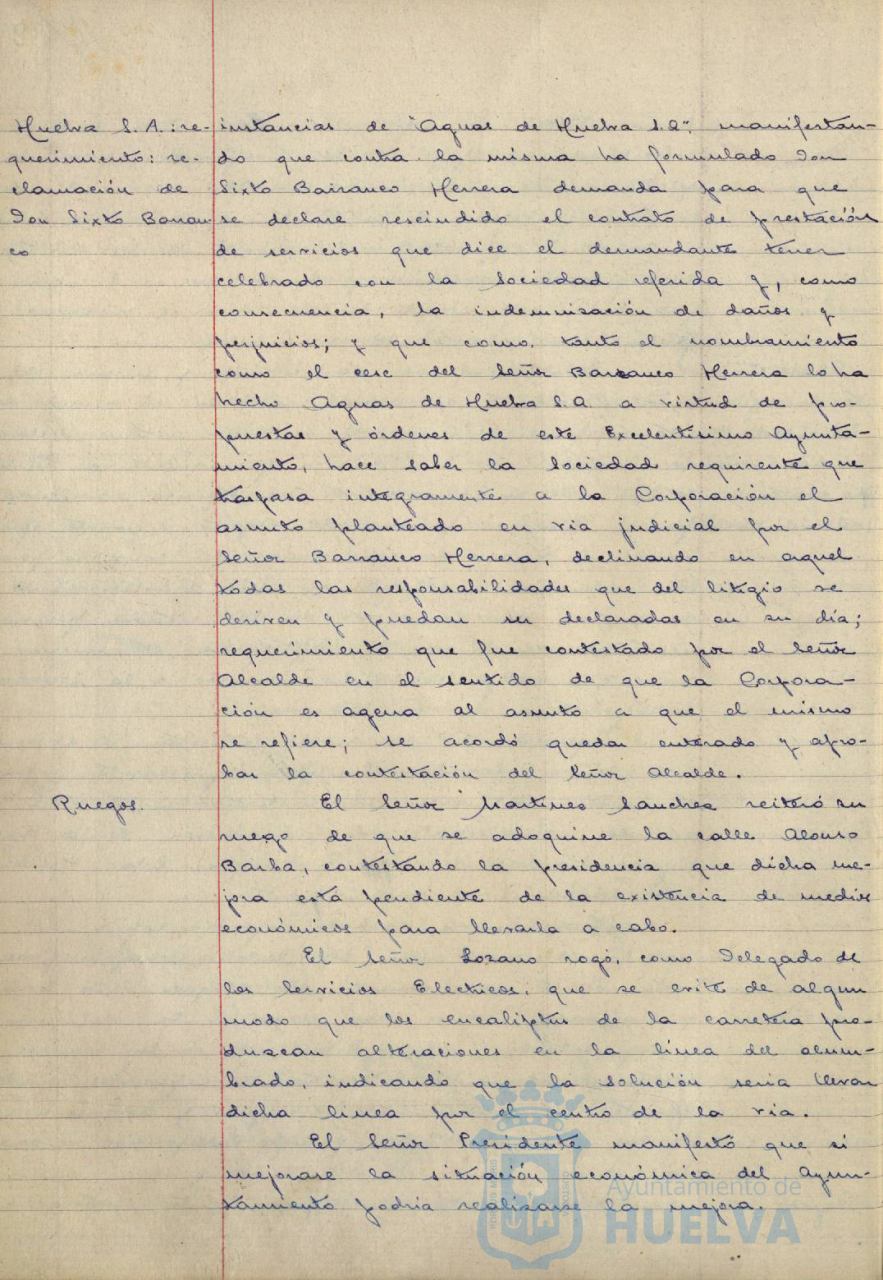 Huelva S. A.: re-
querimiento: re-
clamación de
Don Sixto Barran-
co
instancias de "Aguas de Huelva S.A", manifestan-
do que contra la misma ha formulado Don
Sixto Barranco Herrera demanda para que
se declare rescindido el contrato de prestación
de servicios que dice el demandante tener
celebrado con la sociedad referida y, como
consecuencia, la indemnización de daños y
perjuicios; y que como, tanto el nombramiento
como el cese del Señor Barranco Herrera lo ha
hecho Aguas de Huelva S.A. a virtud de pro-
puestas y órdenes de este Excelentísimo Ayunta-
miento, hace saber la Sociedad requirente que
traspasa integramente a la Corporación el
asunto planteado en via judicial por el
Señor Barranco Herrera, declinando en aquel
todas las responsabilidades que del litigio se
deriven y puedan ser declaradas en su día;
requerimiento que fue contestado por el Señor
Alcalde en el sentido de que la Corpora-
ción es agena al asunto a que el mismo
se refiere; se acordó quedar enterado y apro-
bar la contestación del Señor Alcalde.
Ruegos.
El Señor Martinez Sanchez reiteró su
ruego de que se adoquine la calle Alonso
Barba, contestando la presidencia que dicha me-
jora está pendiente de la existencia de medios
económicos para llevarla a cabo.
El Señor Lozano rogó, como Delegado de
los Servicios Electricos, que se evite de algun
modo que los eucaliptus de la carretera pro-
duzcan alteraciones en la línea del alum-
brado, indicando que la solución seria llevar
dicha linea por el centro de la via.
El Señor Presidente manifestó que si
mejorase la situación económica del Ayun-
tamiento podria realizarse la mejora.
Ayuntamiento de
HUELVA